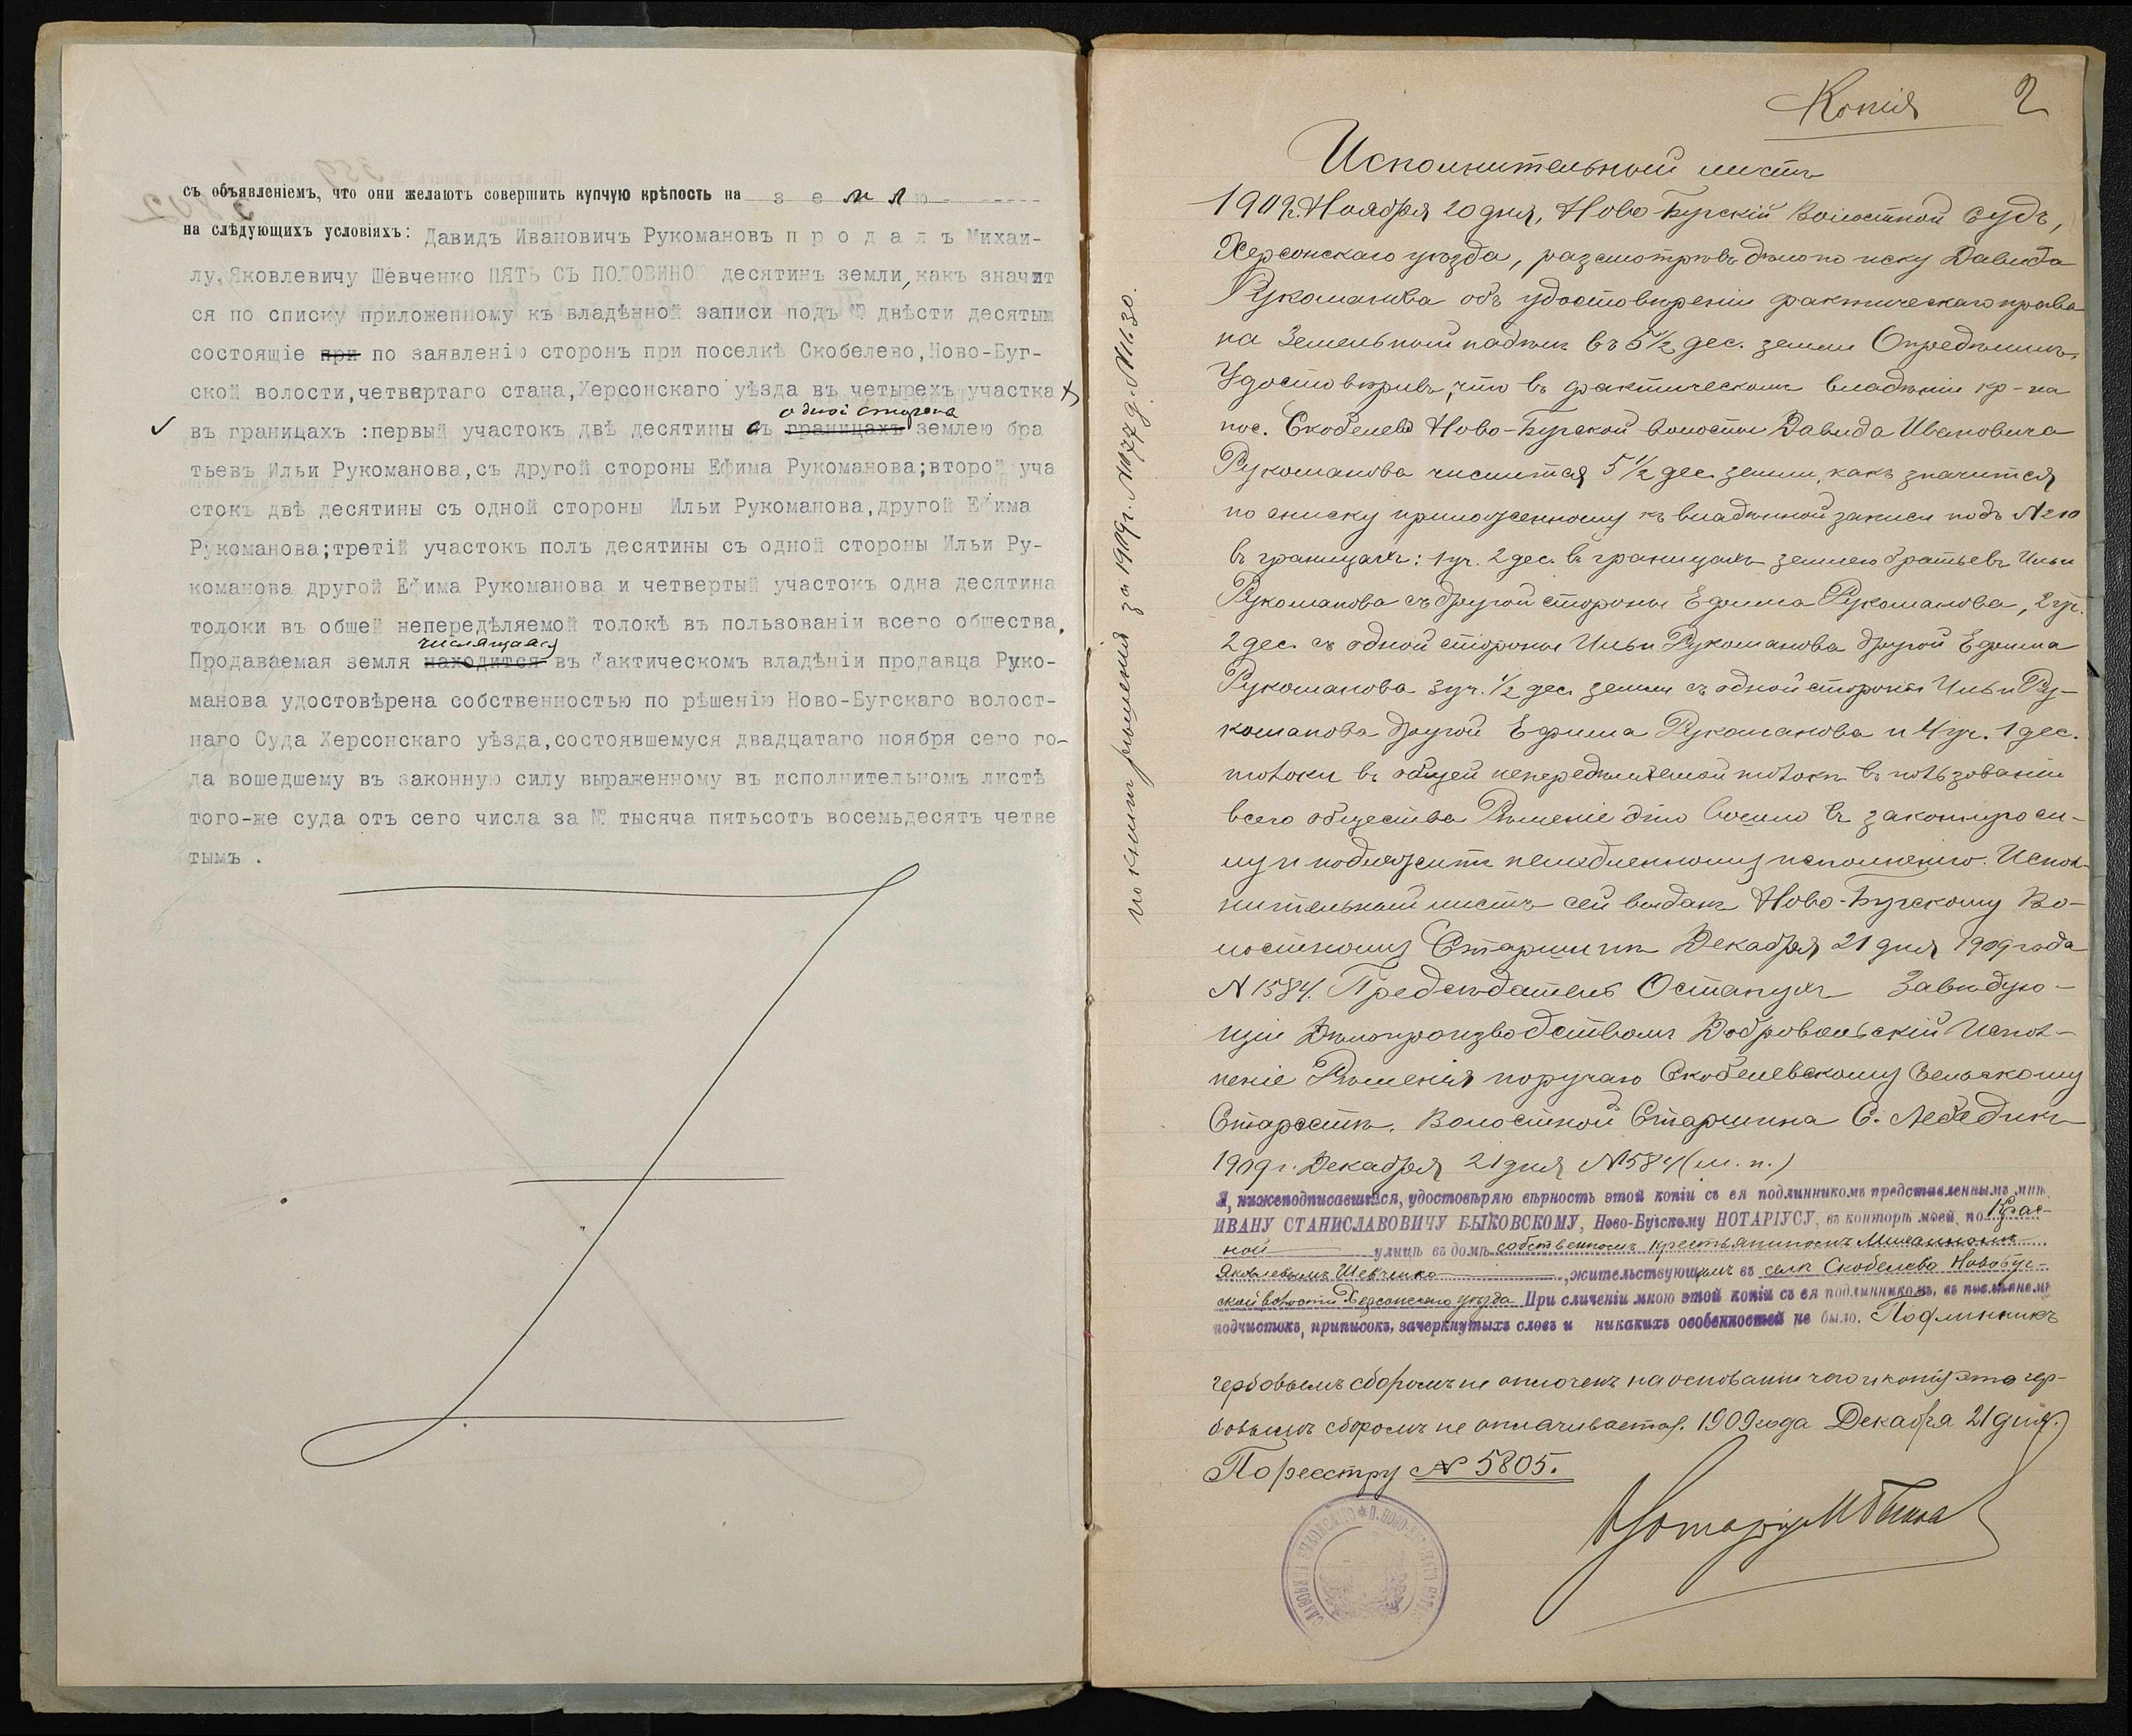 съ объявленіемъ, что они желаютъ совершить купчую крѣпость на землю
на слѣдующихъ условіяхъ: Давидъ Ивановичъ Рукомановъ п р о д а л ъ Михаи-
лу, Яковлевичу Шевченко ПЯТЬ СЪ ПОЛОВИНОЙ десятинъ земли, какъ значит
ся по списку приложенному къ владѣнной записи подъ № двѣсти десятым
состоящіе при по заявленію сторонъ при поселкѣ Скобелево, Ново-Буг-
ской волости, четвертаго стана, Херсонскаго уѣзда въ четырехъ участках
одной стороны
въ границахъ :первый участокъ двѣ десятины съ границахъ землею бра
тьевъ Ильи Рукоманова, съ другой стороны Ефима Рукоманова; второй уча
стокъ двѣ десятины съ одной стороны Ильи Рукоманова, другой Ефима
Рукоманова; третій участокъ полъ десятины съ одной стороны Ильи Ру-
команова другой Ефима Рукоманова и четвертый участокъ одна десятина
толоки въ общей непередѣляемой толокѣ въ пользованіи всего общества.
числящаяся
Продаваемая земля находится въ фактическомъ владѣніи продавца Руко-
манова удостовѣрена собственностью по рѣшенію Ново-Бугскаго волост-
наго Суда Херсонскаго уѣзда, состоявшемуся двадцатаго ноября сего го-
да вошедшему въ законную силу выраженному въ исполнительномъ листѣ
того-же суда отъ сего числа за № тысяча пятьсотъ восемьдесятъ четве
тымъ .
Копія 2
Исполнительный листъ
1909 г. Ноября 20 дня, Ново-Бугскій Волостной Судъ,
Херсонскаго уѣзда, разсмотрѣвъ дѣло по иску Давида
Рукоманова объ удостовѣреніи фактическаго права
на Земельный надѣлъ въ 5½ дес. земли Опредѣлилъ:
Удостовѣривъ, что въ фактическомъ владѣніи кр-на
пос. Скобелева Ново-Бугской волости Давида Ивановича
Рукоманова числится 5½ дес. земли, какъ значится
по списку приложенному къ владѣнной записи подъ № 210
въ границахъ: 1 уч. 2 дес. въ границахъ землею братьевъ Ильи
Рукоманова съ другой стороны Ефима Рукоманова, 2 уч.
2 дес. съ одной стороны Ильи Рукоманова другой Ефима
Рукоманова 3 уч. ½ дес. земли съ одной стороны Ильи Ру-
команова другой Ефима Рукоманова и 4 уч. 1 дес.
толоки въ общей непередѣляемой толокѣ въ пользованіи
всего общества Рѣшеніе это вошло въ законную си-
лу и подлежитъ немедленному исполненію. Испол-
нительный листъ сей выданъ Ново-Бугскому Во-
лостному Старшинѣ Декабря 21 дня 1909 года
№ 1584. Предсѣдатель Остапухъ Завѣдую-
щій Дѣлопроизводствомъ Добровольскій Испол-
неніе Рѣшенія поручаю Скобелевскому Сельскому
Старостѣ. Волостной Старшина С. Лебедикъ
1909 г. Декабря 21 дня № 1584 (м. п.)
Я, нижеподписавшійся, удостовѣряю вѣрность этой копіи съ ея подлинникомъ представленнымъ мнѣ,
ИВАНУ СТАНИСЛАВОВИЧУ БЫКОВСКОМУ, Ново-Бугскому НОТАРІУСУ, въ конторѣ моей, по Крас-
ной улицѣ въ домѣ собственномъ крестьяниномъ Михаиломъ
Яковлевымъ Шевченко, жительствующимъ въ селѣ Скобелево Новобуг-
ской волости Херсонскаго уѣзда При сличеніи мною этой копіи съ ея подлинникомъ, въ послѣднемъ
подчистокъ, приписокъ, зачеркнутыхъ словъ и никакихъ особенностей не было. Подлинникъ
гербовымъ сборомъ не оплоченъ на основаніи чего и копія эта гер-
бовымъ сборомъ не оплачивается. 1909 года Декабря 21 дня.
По реестру № 5805.
Нотаріусъ И Быков
по книгѣ рѣшенія за 1909 г.